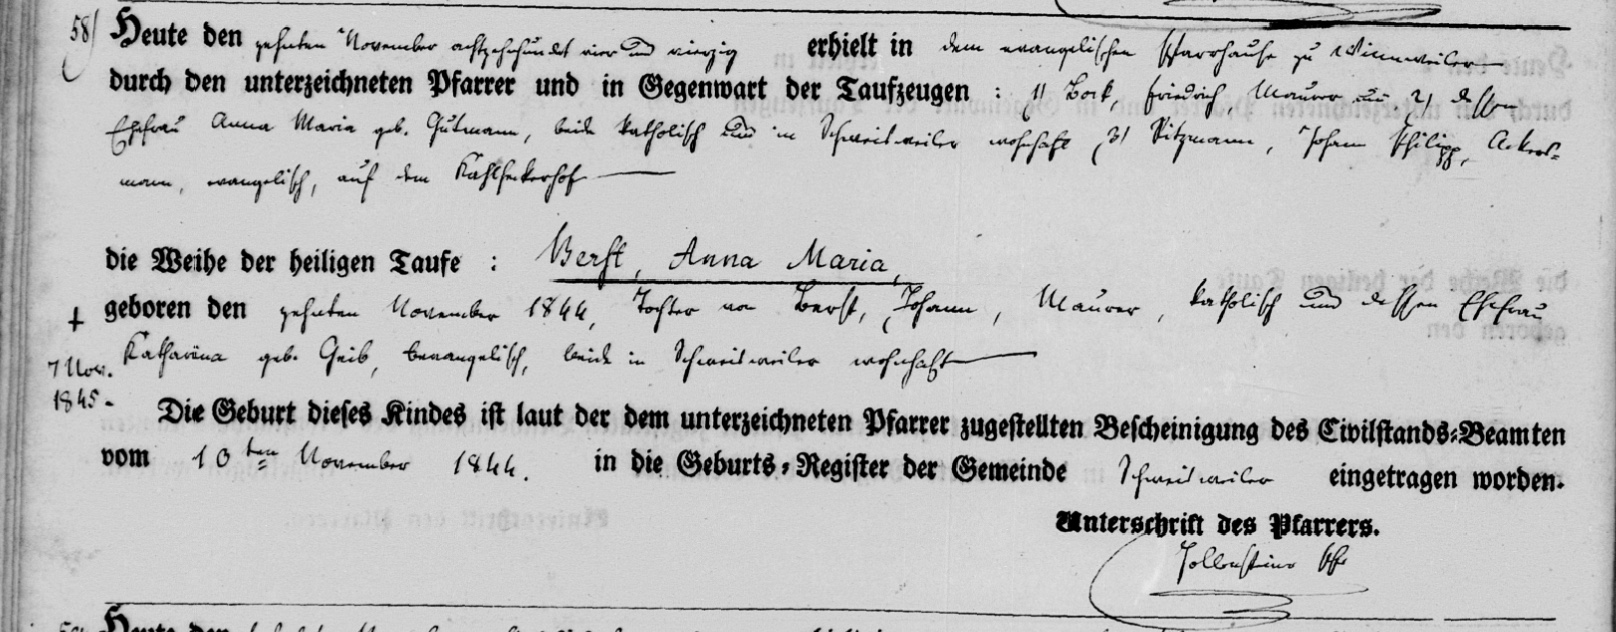 58) Heute den zehnten November achtzehnhundert vier und vierzig erhielt in dem evangelischen Pfarrhause zu Winnweiler
durch den unterzeichneten Pfarrer und in Gegenwart der Taufzeugen : 1) Bock, Friedrich, Maurer und 2) dessen
Ehefrau Anna Maria geb. Gutmann, beide katholisch und in Schweisweiler wohnhaft 3) Ritzmann, Johann Philipp, Ackers-
mann, evangelisch, auf dem Kahlheckerhof
die Weihe der heiligen Taufe : Berst, Anna Maria,
† geboren den zehnten November 1844, Tochter von Berst, Johann, Maurer, katholisch und dessen Ehefrau
Katharina geb. Geib, evangelisch, beide in Schweisweiler wohnhaft
7 Nov.
1845.
Die Geburt dieses Kindes ist laut der dem unterzeichneten Pfarrer zugestellten Bescheinigung des Civilstands-Beamten
vom 10ten November 1844. in die Geburts-Register der Gemeinde Schweisweiler eingetragen worden.
Unterschrift des Pfarrers.
Heute den